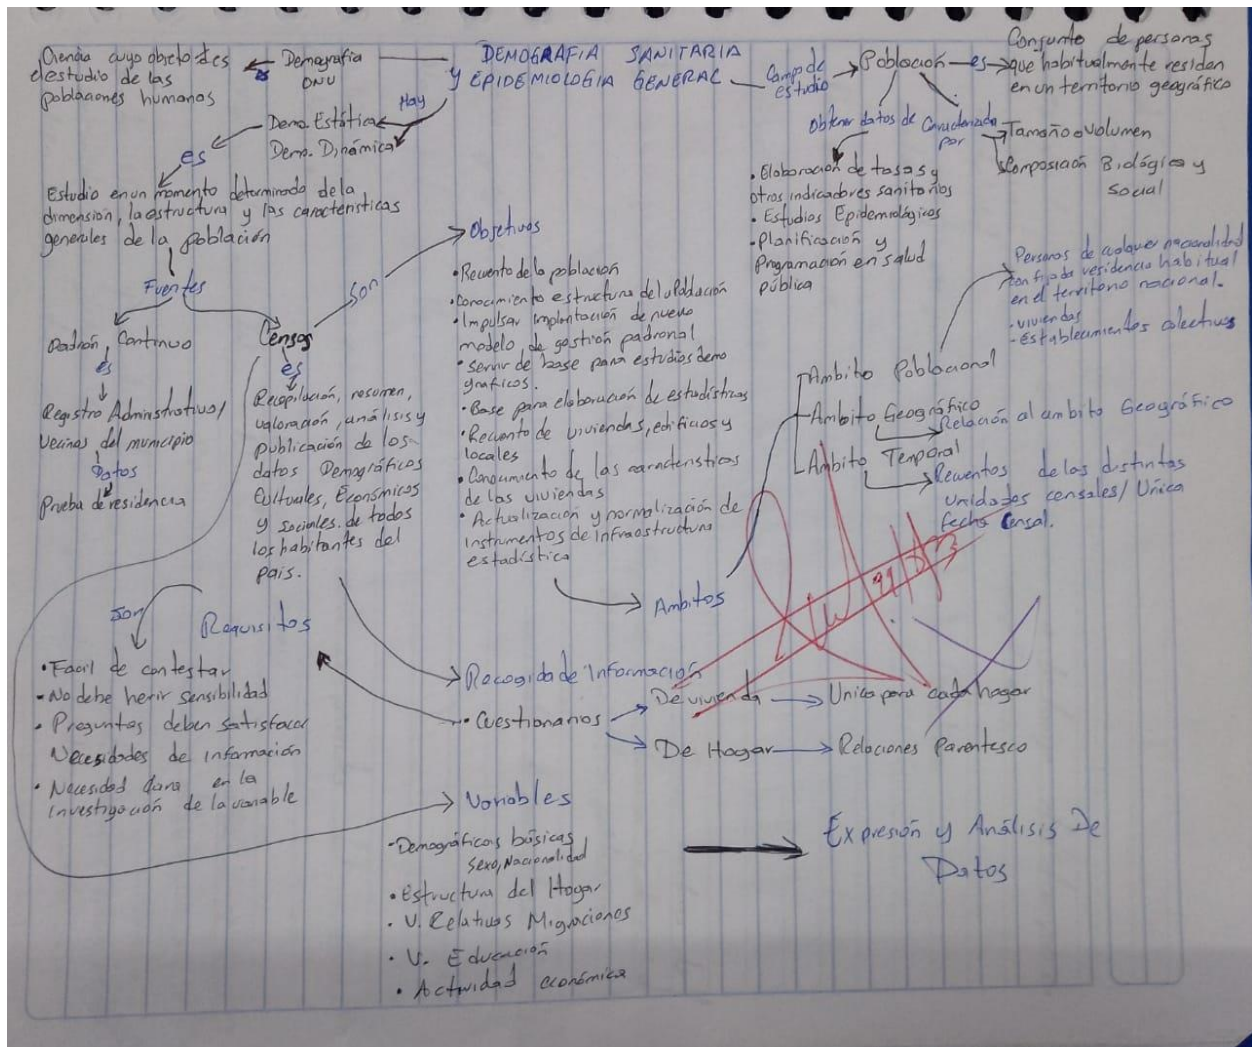 DEMOGRAFIA SANITARIA
Y EPIDEMIOLOGIA GENERAL
Demografia
ONU
es
Ciencia cuyo objeto es
el estudio de las
poblaciones humanas
Hay
Demo. Estática
Demo. Dinámica
es
Estudio en un momento determinado de la
dimensión, la estructura y las características
generales de la población
Fuentes
Padrón Continuo
es
Registro Administrativo/
Vecinos del municipio
Datos
Prueba de residencia
Censos
es
Recopilación, resumen,
valoración, análisis y
publicación de los
datos Demográficos
Culturales, Económicos
y sociales de todos
los habitantes del
país.
Son
Objetivos
• Recuento de la población
• Conocimiento estructura de la Población
• Impulsar implantación de nuevo
modelo de gestión padronal
• Servir de base para estudios demo
graficos.
• Base para elaboración de estadísticas
• Recuento de viviendas, edificios y
locales
• Conocimiento de las caracteristicas
de las viviendas
• Actualización y normalización de
instrumentos de infraestructura
estadística
Campo de
estudio
Población
es
Conjunto de personas
que habitualmente residen
en un territorio geográfico
Obtener datos de
• Elaboración de tasas y
otros indicadores sanitarios
• Estudios Epidemiológicos
• Planificación y
Programación en salud
pública
Caracterizada
por
Tamaño o Volumen
Composición Biológica y
Social
Ambitos
Ámbito Poblacional
Personas de cualquier nacionalidad
con fijada residencia habitual
en el territorio nacional.
- viviendas
- Establecimientos colectivos
Ámbito Geográfico
Relación al ambito Geográfico
Ámbito Temporal
Recuentos de las distintas
Unidades censales/ Única
fecha Censal.
Recogida de Información
• Cuestionarios
De vivienda
Unica para cada hogar
De Hogar
Relaciones Parentesco
Requisitos
Son
• Facil de contestar
• No debe herir sensibilidad
• Preguntas deben satisfacer
Necesidades de información
• Necesidad clara en la
investigación de la variable
Variables
• Demográficas básicas
Sexo, Nacionalidad
• Estructura del Hogar
• V. Relativas Migraciones
• V. Educación
• Actividad económica
Expresión y Análisis De
Datos